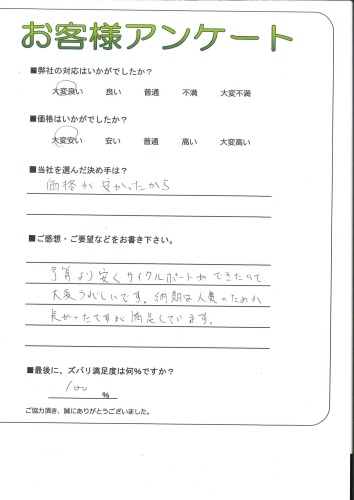 お客様アンケート
■弊社の対応はいかがでしたか？
大変良い 良い 普通 不満 大変不満
■価格はいかがでしたか？
大変安い 安い 普通 高い 大変高い
■当社を選んだ決め手は？
価格が安かったから
■ご感想・ご要望などをお書き下さい。
予算より安くサイクルポートができたので
大変うれしいです。納期は人気のためか
長かったですが満足しています。
■最後に、ズバリ満足度は何％ですか？
100 ％
ご協力頂き、誠にありがとうございました。